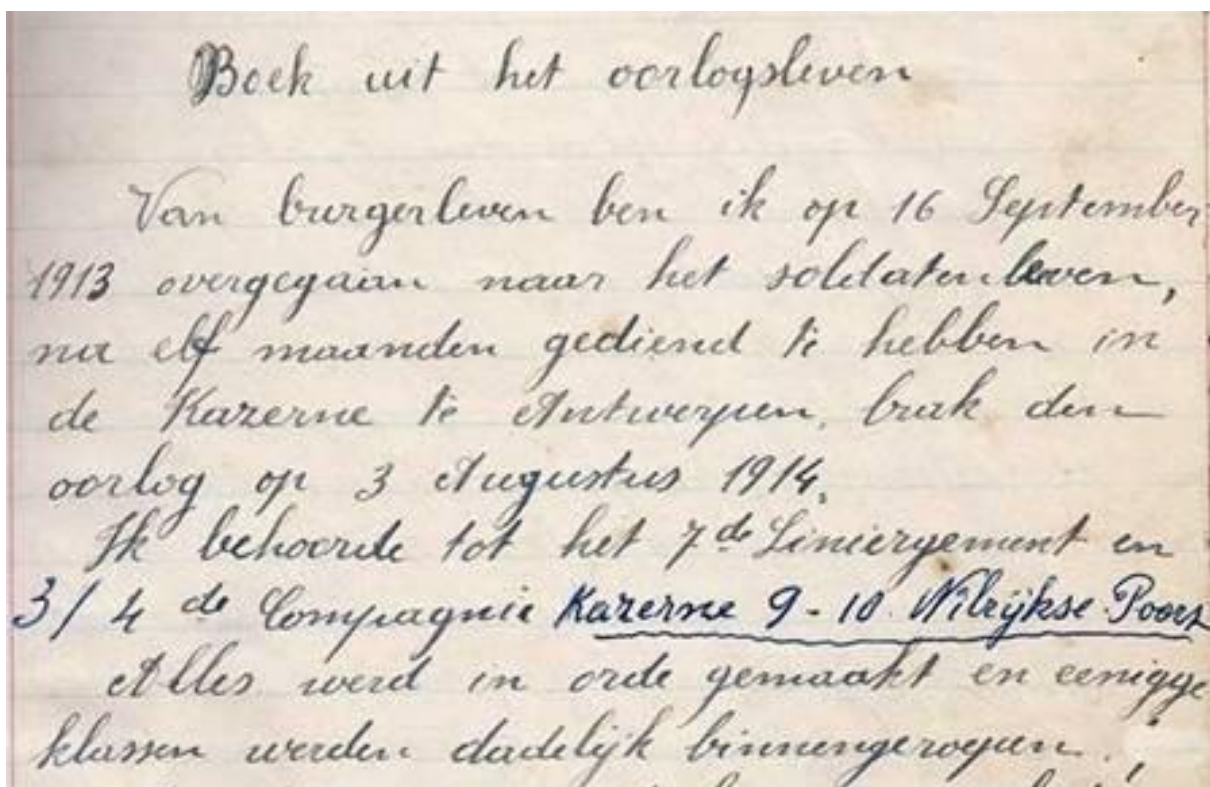 Boek uit het oorlogsleven
Van burgerleven ben ik op 16 September
1913 overgegaan naar het soldatenleven,
na elf maanden gediend te hebben in
de Kazerne te Antwerpen, brak den
oorlog op 3 Augustus 1914.
Ik behoorde tot het 7de Liniergement en
3/ 4 de Compagnie Kazerne 9-10 Wilrijkse Poort
Alles werd in orde gemaakt en eenigge
klassen werden dadelijk binnengeroepen.